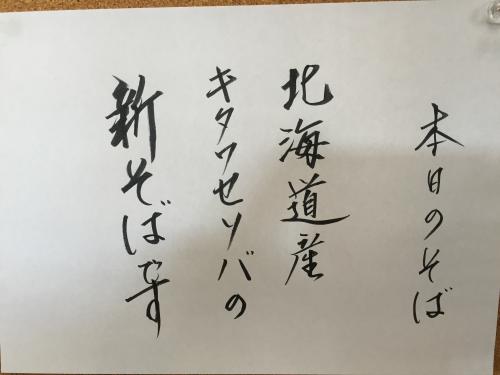 本日のそば
北海道産
キタワセソバの
新そばです